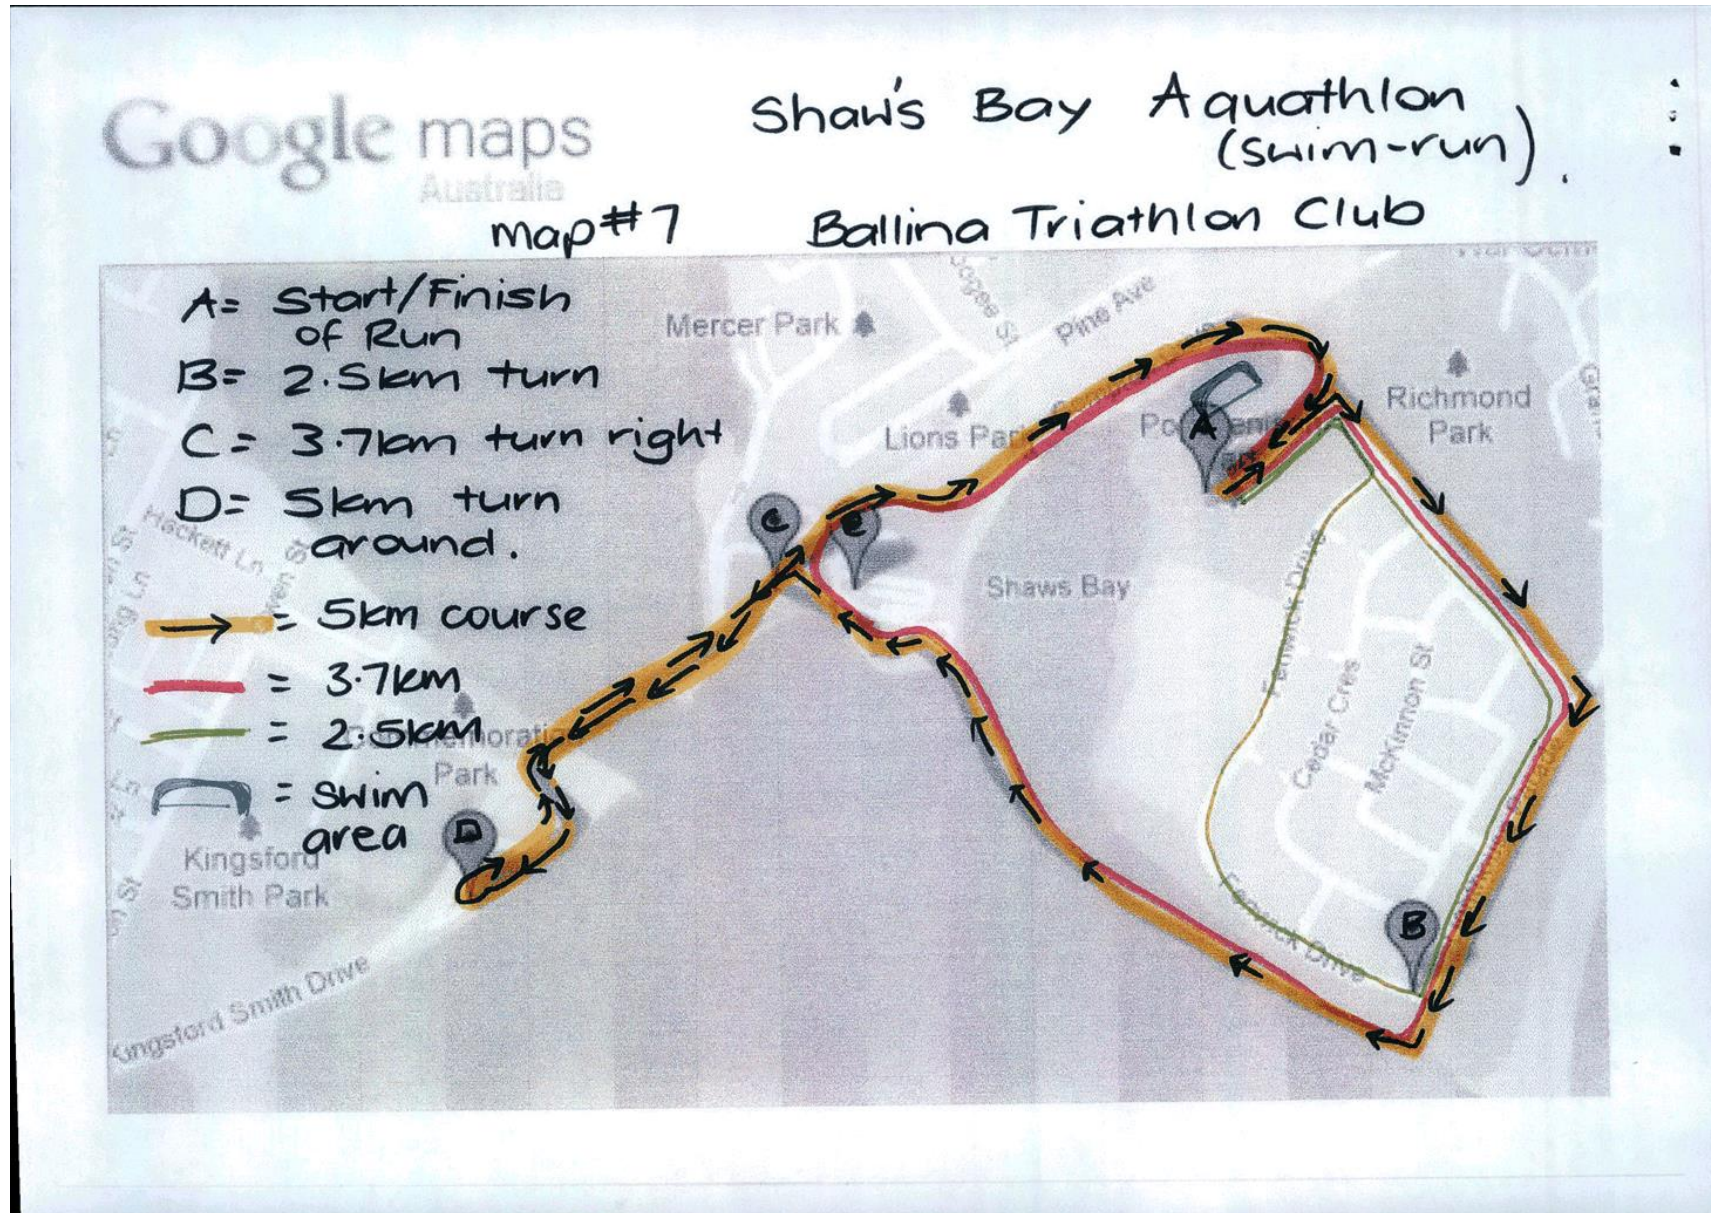 Google maps
Australia
Shaw's Bay Aquathlon
(swim-run).
map#7
Ballina Triathlon Club
A= Start/Finish
of Run
B= 2.5km turn
C= 3.7km turn right
D= 5km turn
around.
= 5km course
= 3.7km
= 2.5km
= swim
area
Mercer Park
Pine Ave
Lions Par
Richmond
Park
A
C
C
Shaws Bay
Hackett Ln
Fenwick Drive
Cedar Cres
McKinnon St
Park
D
Kingsford
Smith Park
B
Fenwick Drive
Kingsford Smith Drive